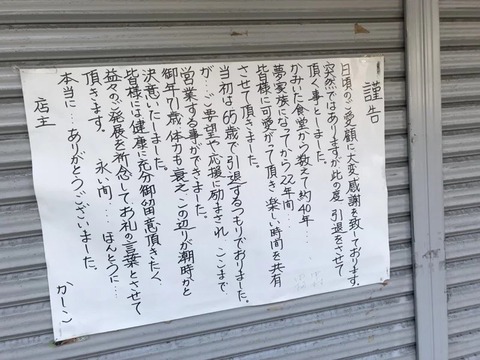 謹告
日頃のご愛顧に大変感謝を致しております。
突然ではありますが此の度 引退をさせて
頂く事としました。
かみいた食堂から数えて約40年
夢家族になってから22年間…
皆様に可愛がって頂き 楽しい時間を共有
させて頂きました。
当初は65歳で引退するつもりでおりました。
が…ご要望や応援に励まされ ここまで
営業する事ができました。
御年71歳 体力も衰え この辺りが潮時かと
決意いたしました。
皆様には健康に充分御留意頂きたく、
益々のご発展を祈念して お礼の言葉とさせて
頂きます。 永い間… ほんとうに…
本当に…ありがとうございました。
店主 かーこ